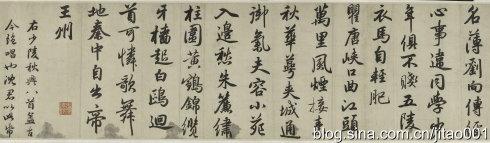 名薄劉向傳經
心事違同學少
年俱不賤五陵
衣馬自輕肥
瞿唐峽口曲江頭
萬里風煙接素
秋華萼夾城通
御氣夫容小苑
入邊愁朱簾繡
柱圍黃鶴錦纜
牙檣起白鷗迴
首可憐歌舞
地秦中自古帝
王州
右少陵秋興八首盖古
今絕唱也沈君以此帋
blog.sina.com.cn/jitao001